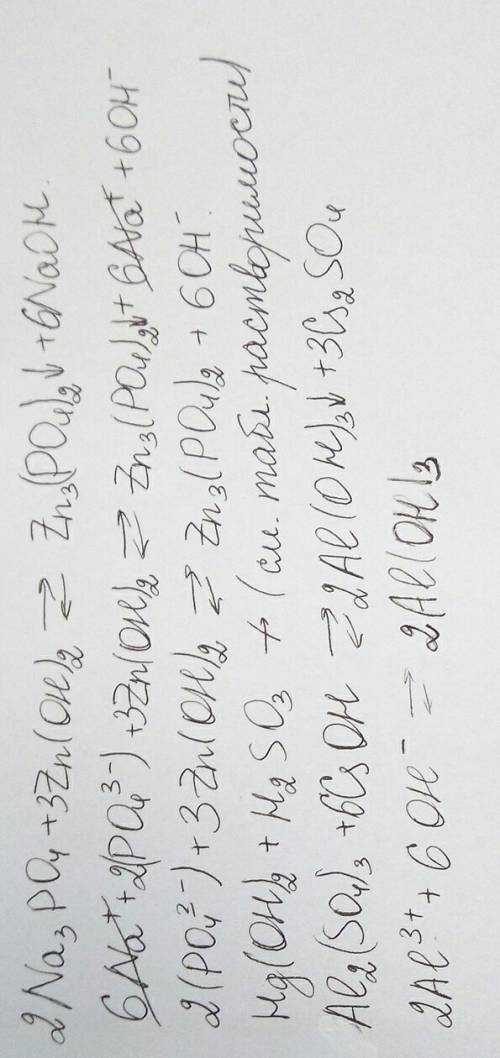 2Na₃PO₄ + 3Zn(OH)₂ ⇄ Zn₃(PO₄)₂↓ + 6NaOH.
6Na⁺ + 2(PO₄³⁻) + 3Zn(OH)₂ ⇄ Zn₃(PO₄)₂↓ + 6Na⁺ + 6OH⁻
2(PO₄³⁻) + 3Zn(OH)₂ ⇄ Zn₃(PO₄)₂ + 6OH⁻.
Hg(OH)₂ + H₂SO₃ ↛ (см. табл. растворимости)
Al₂(SO₄)₃ + 6CsOH ⇄ 2Al(OH)₃↓ + 3Cs₂SO₄
2Al³⁺ + 6OH⁻ ⇄ 2Al(OH)₃